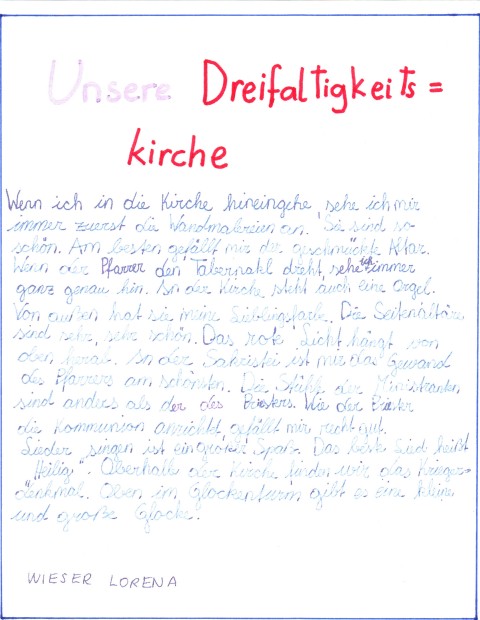 Unsere Dreifaltigkeits=
kirche
Wenn ich in die Kirche hineingehe, sehe ich mir
immer zuerst die Wandmalereien an. Sie sind so
schön. Am besten gefällt mir der geschmückte Altar.
Wenn der Pfarrer den Tabernakl dreht, sehe ich immer
ganz genau hin. In der Kirche steht auch eine Orgel.
Von außen hat sie meine Lieblingsfarbe. Die Seitenaltäre
sind sehr, sehr schön. Das rote Licht hängt von
oben herab. In der Sakristei ist mir das Gewand
des Pfarrers am schönsten. Die der Ministranten
sind anders als der des Priesters. Wie der Priester
die Kommunion anrichtet, gefällt mir recht gut.
Lieder singen ist ein großer Spaß. Das beste Lied heißt
"Heilig". Oberhalb der Kirche finden wir das Krieger=
denkmal. Oben im Glockenturm gibt es eine kleine
und große Glocke.
WIESER LORENA